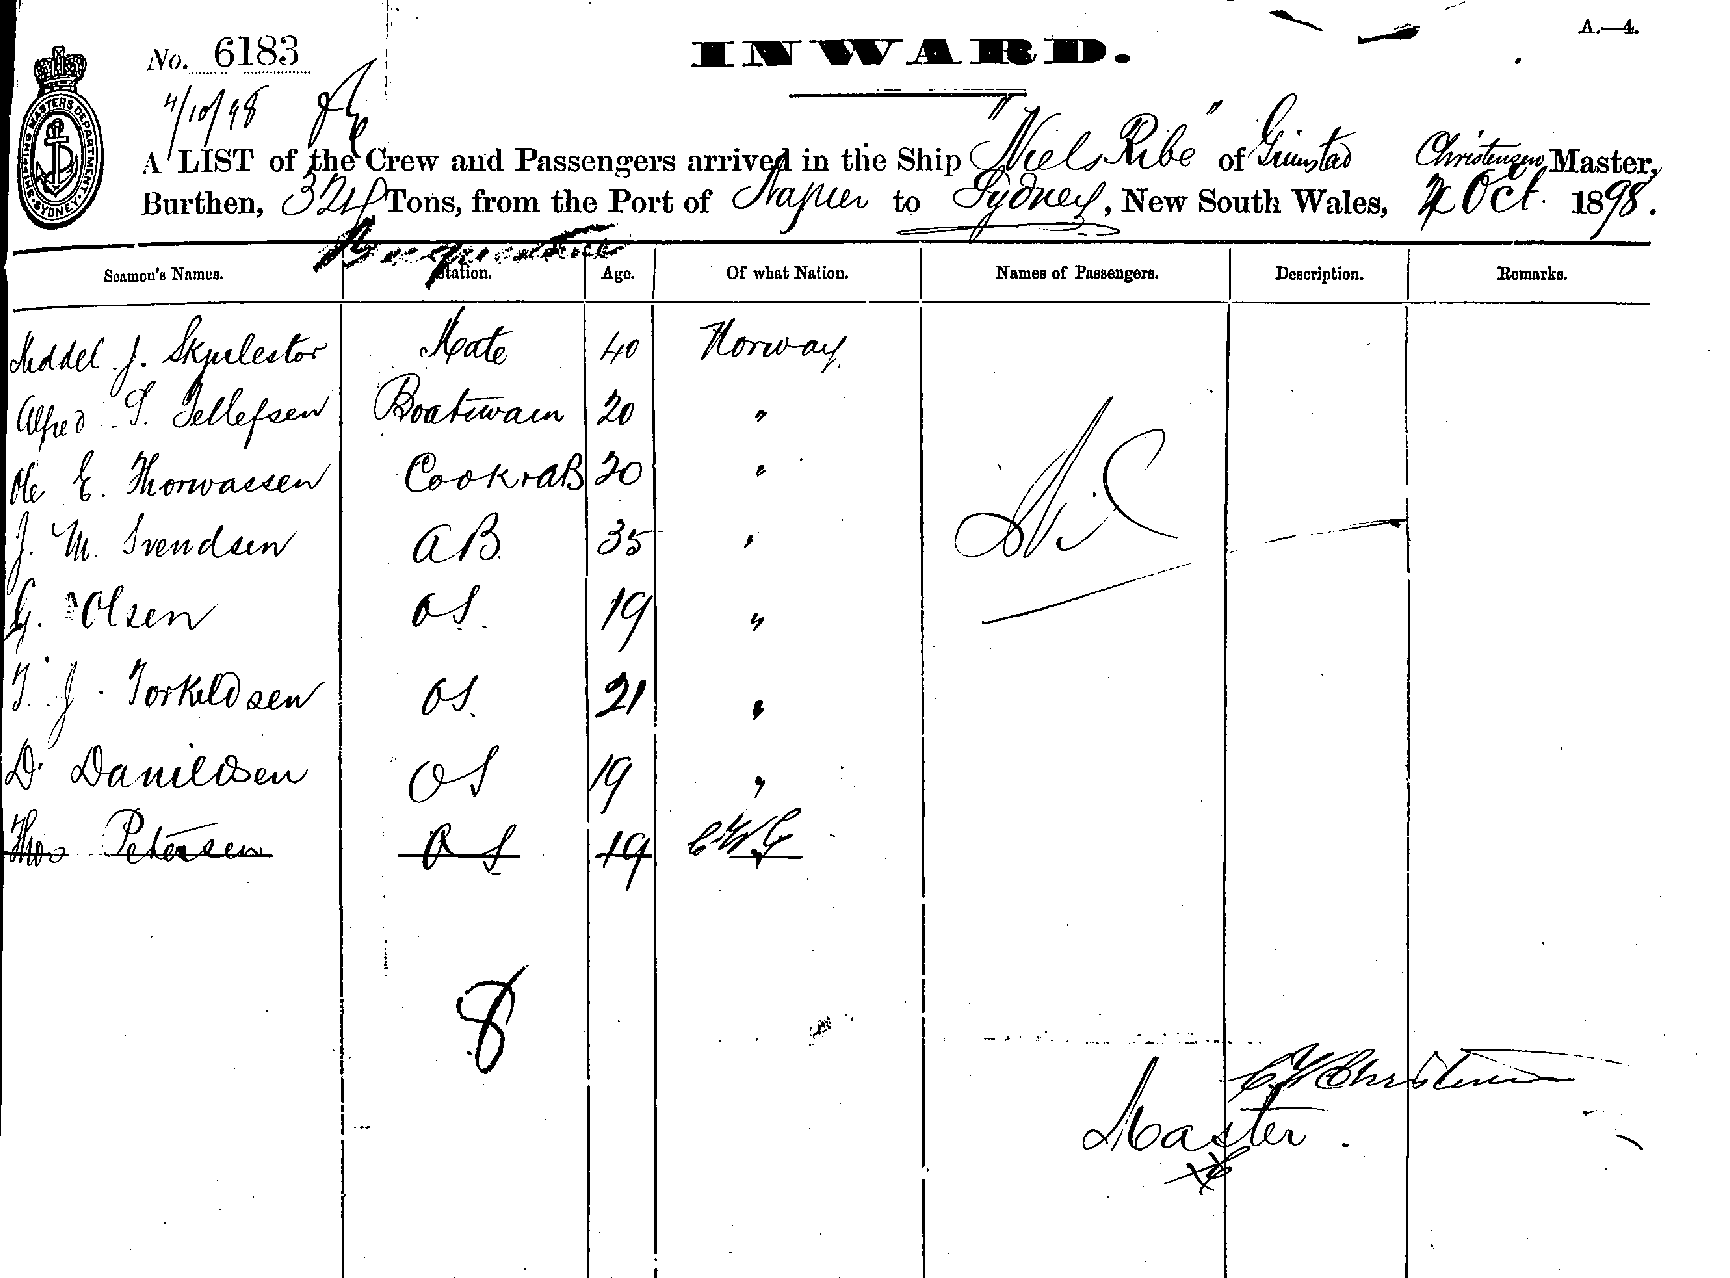 A.—4.
No. 6183
INWARD.
4/10/98
SHIPPING MASTERS DEPARTMENT SYDNEY
A LIST of the Crew and Passengers arrived in the Ship "Niels Ribe" of Grimstad Christensen Master,
Burthen, 324 Tons, from the Port of Napier to Sydney, New South Wales, 4 Oct. 1898.
Barquentine
Seamen's Names. Station. Age. Of what Nation. Names of Passengers. Description. Remarks.
J. Mate 40 Norway
Alfred T. Tellefsen Boatswain 20 "
Ole E. Thorwassen Cook & AB 20 "
J. M. Svendsen AB 35 "
Nil
G. Olsen OS. 19 "
T. J. Torkildsen OS. 21 "
D. Danildsen OS 19 "
Thos Petersen OS 19
8
Christensen
Master.